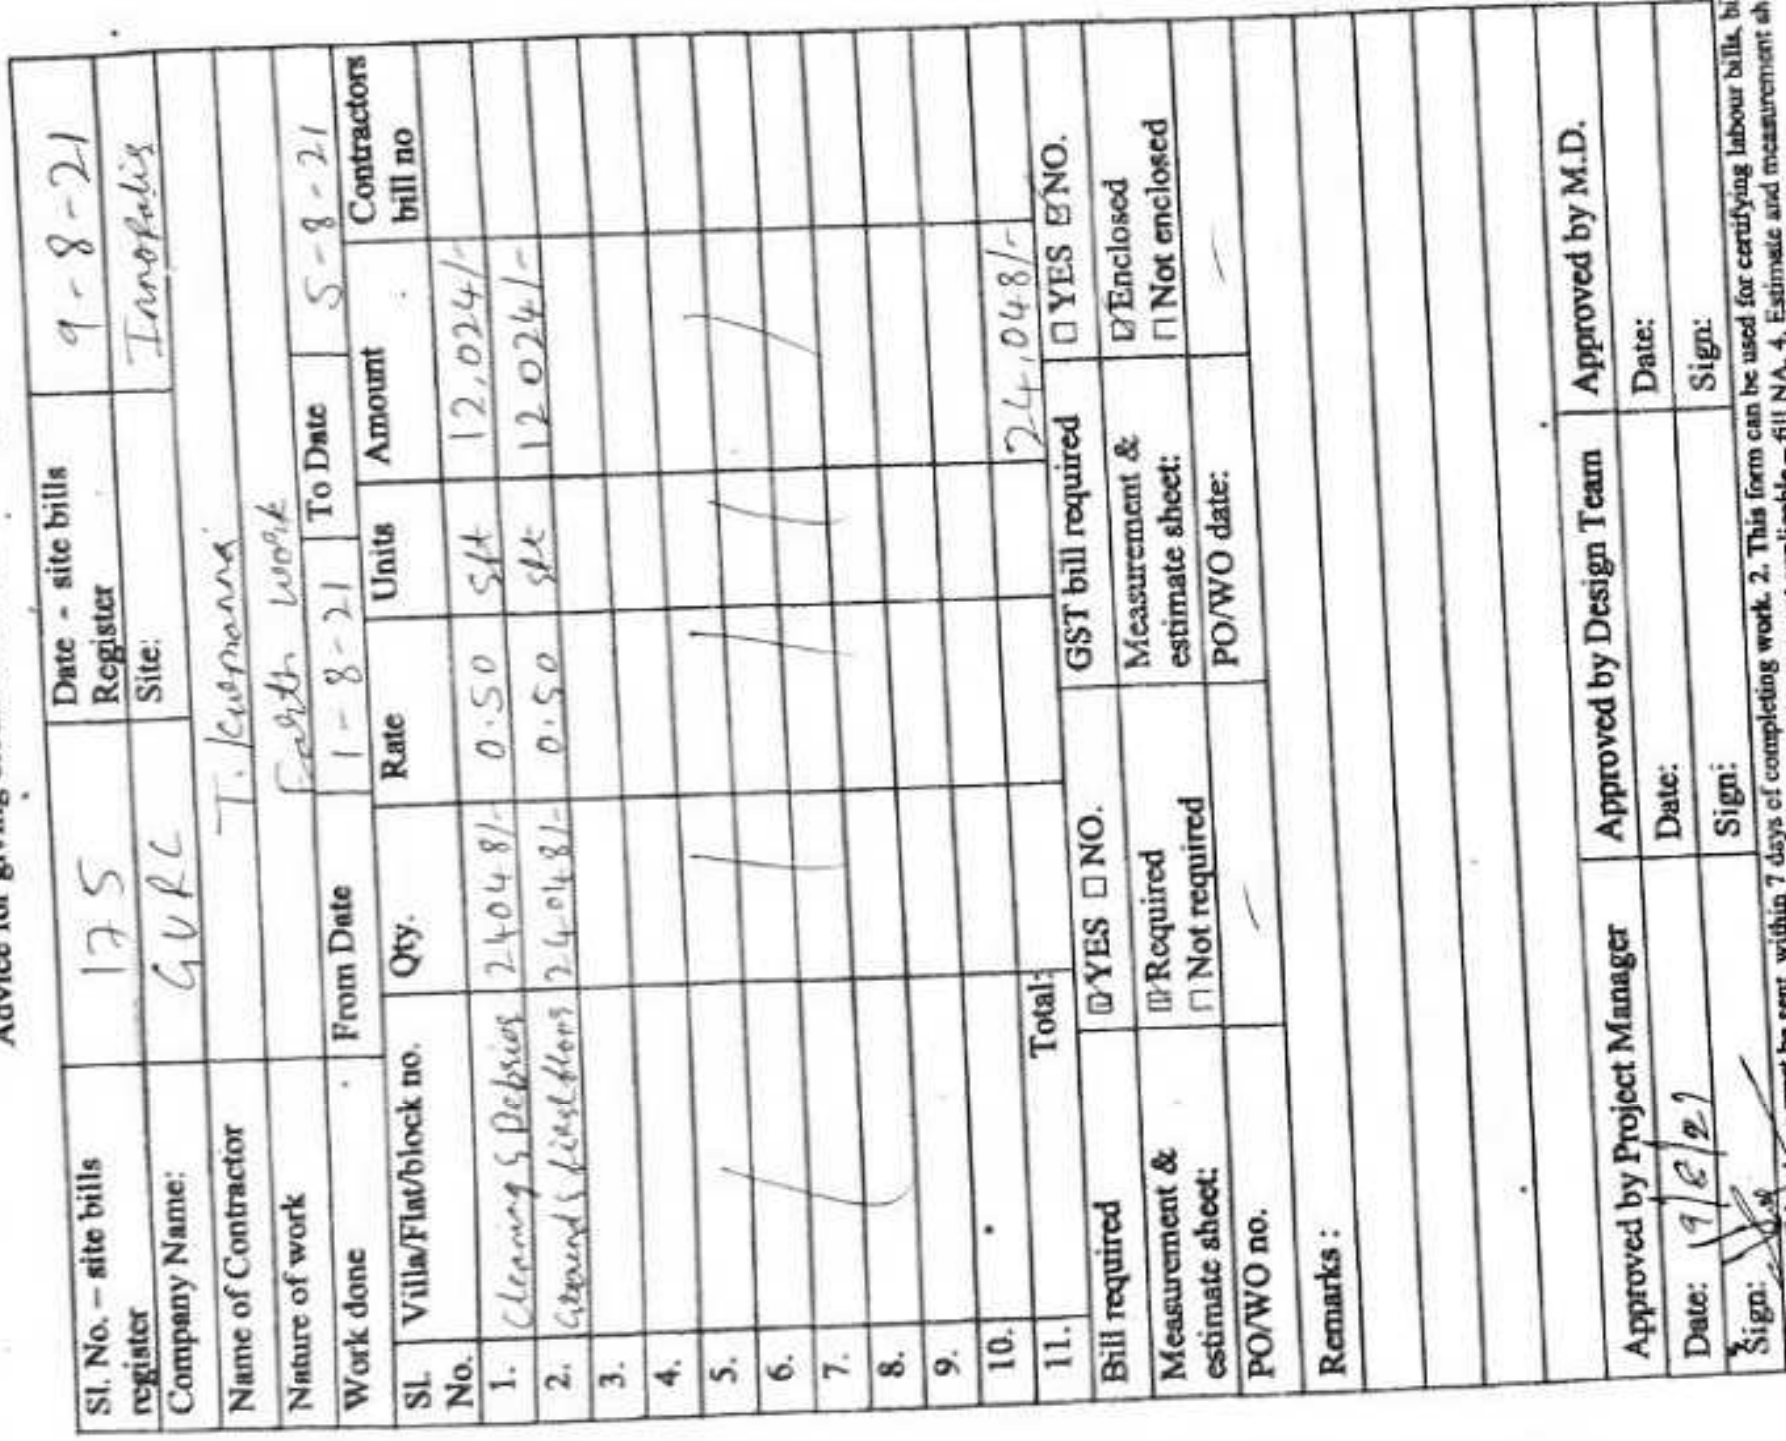 Sl. No. – site bills register 175 Date - site bills Register 9-8-21
Company Name: GVRC Site: Innopolis
Name of Contractor T. Kurmanna
Nature of work Earth work
Work done From Date 1-8-21 To Date 5-8-21
Sl. No. Villa/Flat/block no. Qty. Rate Units Amount Contractors bill no
1. Cleaning & Debries 24048/- 0.50 Sft 12,024/-
2. Ground & first floors 24048/- 0.50 sft 12024/-
3.
4.
5.
6.
7.
8.
9.
10.
11. Total: 24,048/-
Bill required ☑YES ☐NO. GST bill required ☐YES ☑NO.
Measurement & estimate sheet: ☑Required ☐Not required Measurement & estimate sheet: ☑Enclosed ☐Not enclosed
PO/WO no. – PO/WO date: –
Remarks :
Approved by Project Manager Approved by Design Team Approved by M.D.
Date: 9/8/21 Date: Date:
Sign: Sign: Sign:
be sent within 7 days of completing work. 2. This form can be used for certifying labour bills,
fill NA. 4. Estimate and measurement